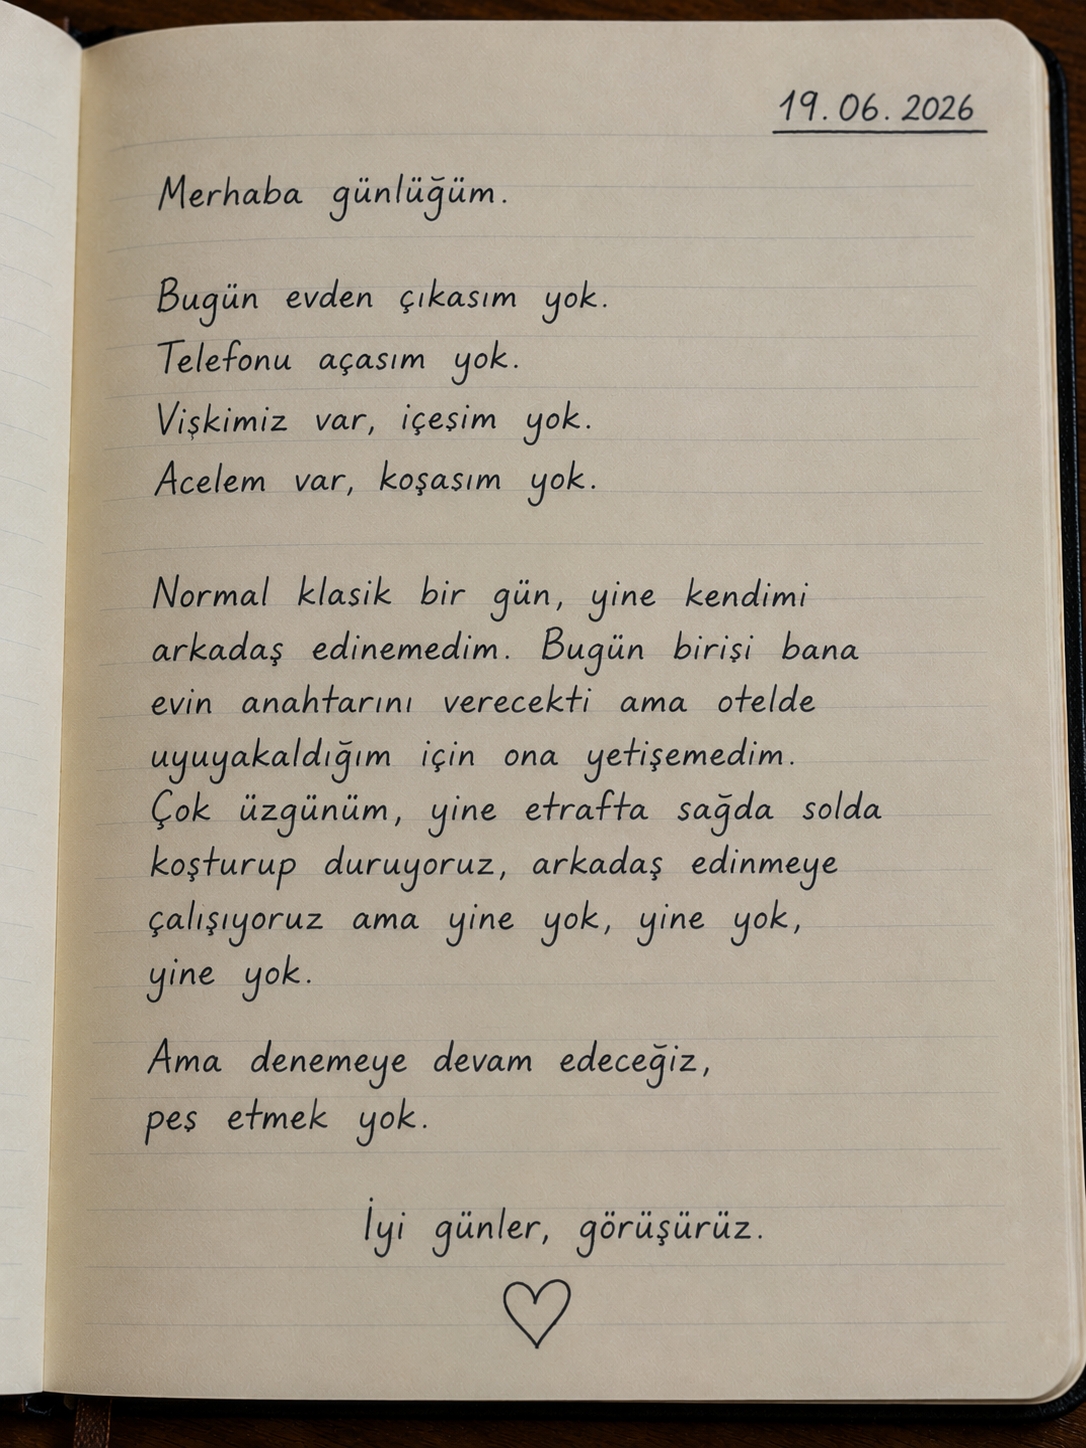 19.06.2026
Merhaba günlüğüm.
Bugün evden çıkasım yok.
Telefonu açasım yok.
Vişkimiz var, içesim yok.
Acelem var, koşasım yok.
Normal klasik bir gün, yine kendimi
arkadaş edinemedim. Bugün birisi bana
evin anahtarını verecekti ama otelde
uyuyakaldığım için ona yetişemedim.
Çok üzgünüm, yine etrafta sağda solda
koşturup duruyoruz, arkadaş edinmeye
çalışıyoruz ama yine yok, yine yok,
yine yok.
Ama denemeye devam edeceğiz,
pes etmek yok.
İyi günler, görüşürüz.